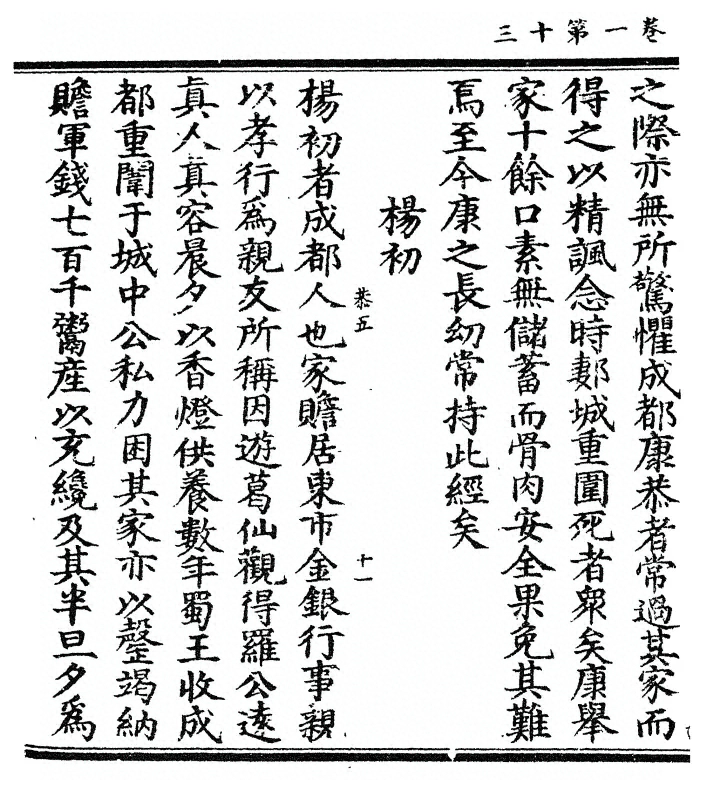 卷一第十三
之際亦無所驚懼成都康恭者常過其家而
得之以精諷念時郪城重圍死者衆矣康舉
家十餘口素無儲蓄而骨肉安全果免其難
焉至今康之長幼常持此經矣
楊初
恭五 十一
楊初者成都人也家贍居東市金銀行事親
以孝行爲親友所稱因遊葛仙觀得羅公遠
真人真容晨夕以香燈供養數年蜀王收成
都重闉于城中公私力困其家亦以罄竭納
贍軍錢七百千鬻產以充纔及其半旦夕爲